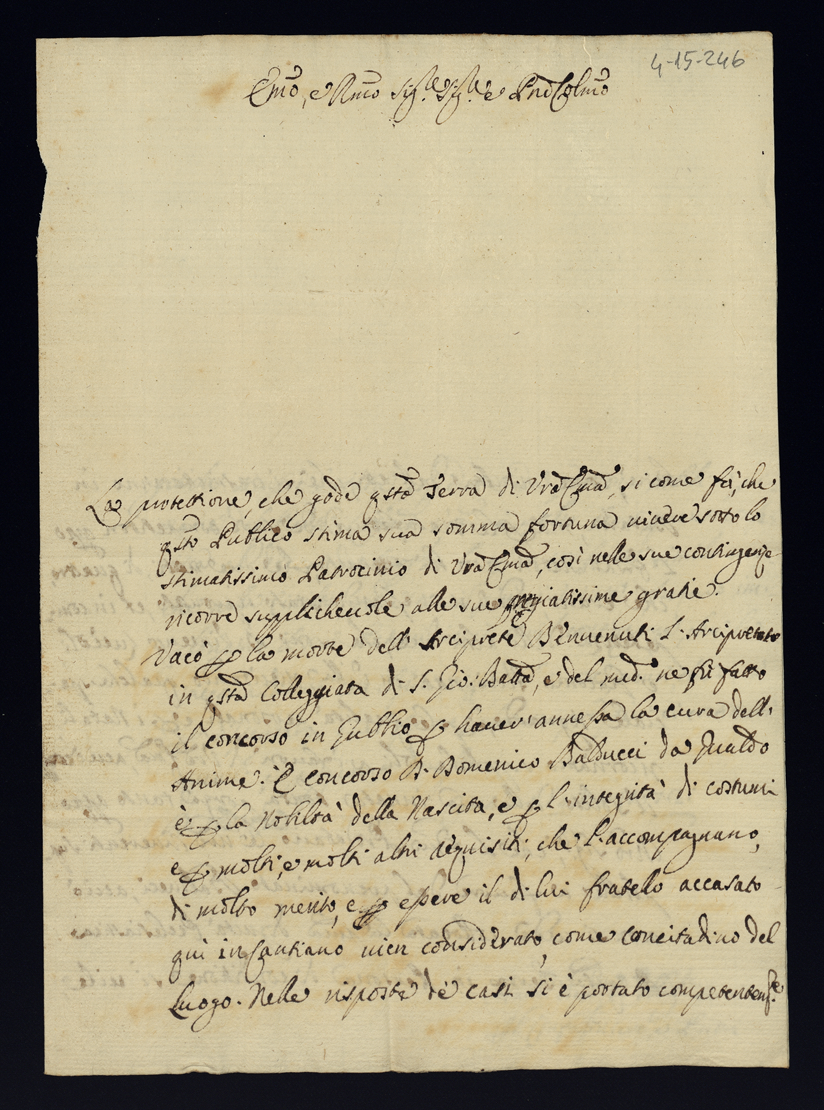 4-15-246
Emo, e Rmo Sigre Sigre e Pne Colmo
La protettione, che gode qsta Terra di Vra Emza, si come fà, che
qsto Publico stima sua somma fortuna vivere sotto lo
stimatissimo Patrocinio di Vra Emza, così nelle sue contingenze
ricorre supplichevole alle sue pregiatissime gratie.
Vacò p la morte dell' Arciprete Benvenuti l'Arcipretato
in qsta Colleggiata di S. Gio: Batta, e del med. ne fù fatto
il concorso in Gubbio p haver' annessa la cura dell'
Anime. È concorso D. Domenico Balducci da Gualdo
è p la Nobiltà della Nascita, e p l'integrità di costumi
e p molti, e molti altri requisiti, che l'accompagnano,
di molto merito, e p essere il di lui fratello accasato
qui in Cantiano vien considerato, come concitadino del
luogo. Nelle risposte de casi si è portato competentemte